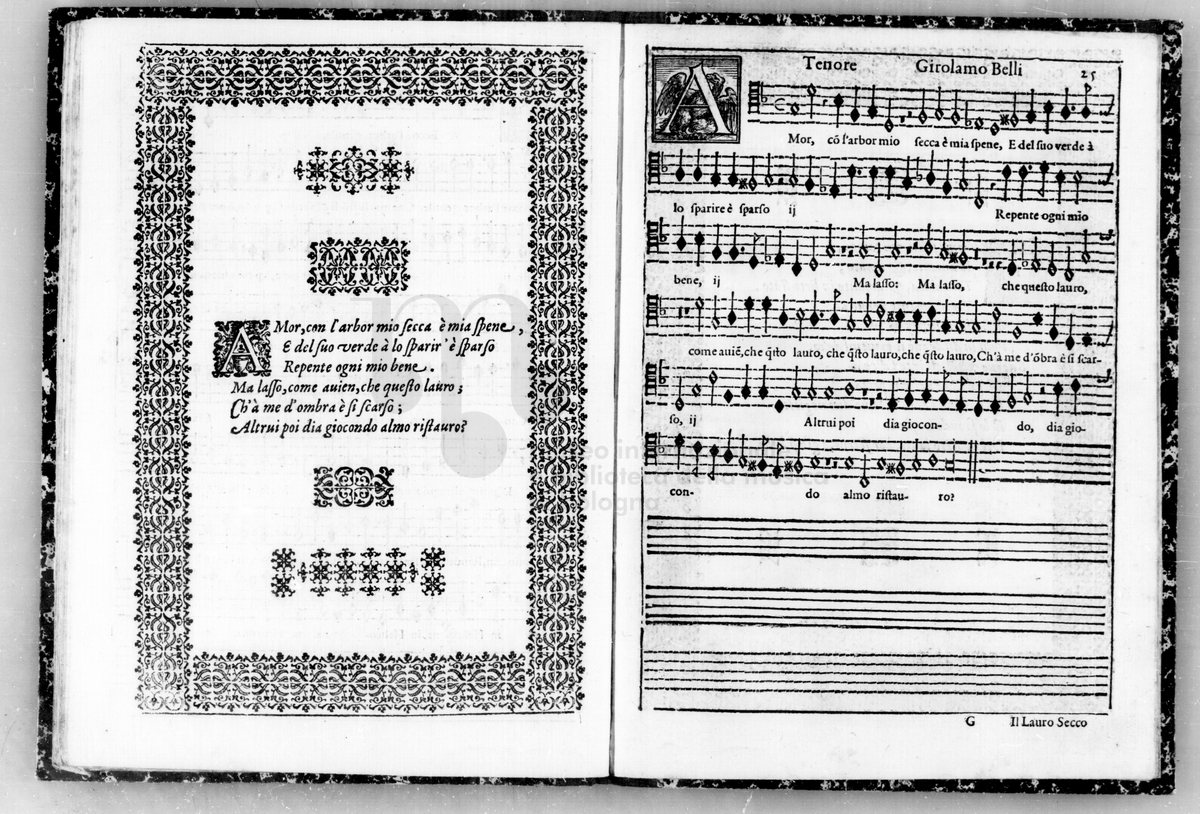 AMor, con l'arbor mio secca è mia spene,
E del suo verde à lo sparir' è sparso
Repente ogni mio bene.
Ma lasso, come auien, che questo lauro;
Ch'à me d'ombra è si scarso;
Altrui poi dia giocondo almo ristauro?
Tenore Girolamo Belli 25
AMor, cō l'arbor mio secca è mia spene, E del suo verde à
lo sparire è sparso ij Repente ogni mio
bene, ij Ma lasso: Ma lasso, che questo lauro,
come auiē, che q̃sto lauro, che q̃sto lauro, che q̃sto lauro, Ch'à me d'ōbra è si scar-
so, ij Altrui poi dia giocon- do, dia gio-
con- do almo ristau- ro?
G Il Lauro Secco
biblioteca della musica